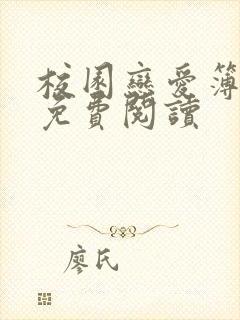 校園戀愛簿
免費閱讀
廖氏